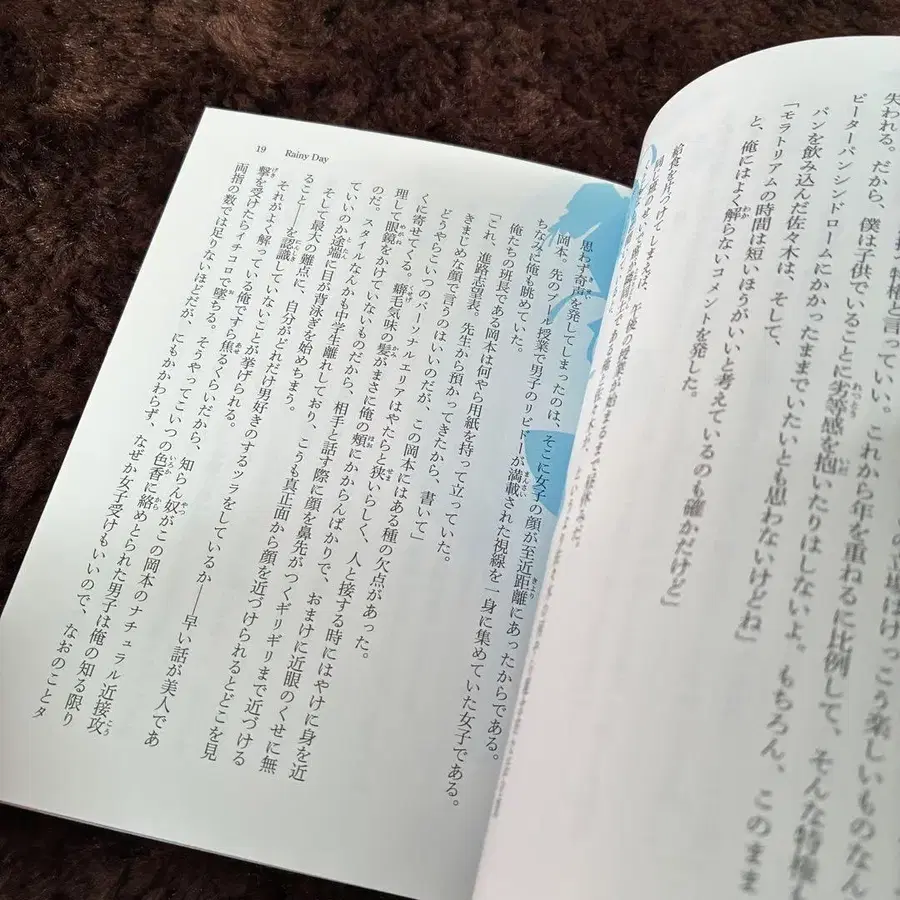 の立場はけっこう楽しいものなん
特権と言っていい。これから年を重ねるに比例して、そんな特権も
失われる。だから、僕は子供でいることに劣等感を抱いたりはしないよ。もちろん、このまま
ピーターパンシンドロームにかかったままでいたいとも思わないけどね」
パンを飲み込んだ佐々木は、そして、
「モラトリアムの時間は短いほうがいいと考えているのも確かだけど」
と、俺にはよく解らないコメントを発した。
給食を片づけてしまえば、午後の授業が始まるまで昼休みだ。
19 Rainy Day
思わず奇声を発してしまったのは、そこに女子の顔が至近距離にあったからである。
岡本。先のプール授業で男子のリビドーが満載された視線を一身に集めていた女子である。
ちなみに俺も眺めていた。
俺たちの班長である岡本は何やら用紙を持って立っていた。
「これ、進路志望表。先生から預かってきたから、書いて」
きまじめな顔で言うのはいいのだが、この岡本にはある種の欠点があった。
どうやらこいつのパーソナルエリアはやたらと狭いらしく、人と接する時にはやけに身を近
くに寄せてくる。癖毛気味の髪がまさに俺の頬にかからんばかりで、おまけに近眼のくせに無
理して眼鏡をかけていないものだから、相手と話す際に顔を鼻先がつくギリギリまで近づける
のだ。スタイルなんかも中学生離れしており、こうも真正面から顔を近づけられるとどこを見
ていいのか途端に目が背泳ぎを始めちまう。
そして最大の難点に、自分がどれだけ男好きのするツラをしているか――早い話が美人であ
ること――を認識していないことが挙げられる。
それがよく解っている俺ですら焦るくらいだから、知らん奴がこの岡本のナチュラル近接攻
撃を受けたらイチコロで墜ちる。そうやってこいつの色香に絡めとられた男子は俺の知る限り
両指の数では足りないほどだが、にもかかわらず、なぜか女子受けもいいので、なおのことタ